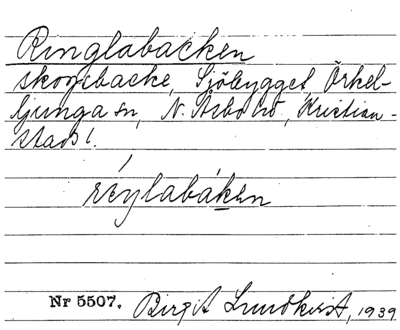 Ringlabacken
skogsbacke, Sjöbygget, Örkel-
ljunga sn, N. Åsbo hd, Kristian-
stads l.
ríŋlabáken
Nr 5507. Birgit Lundkvist, 1939